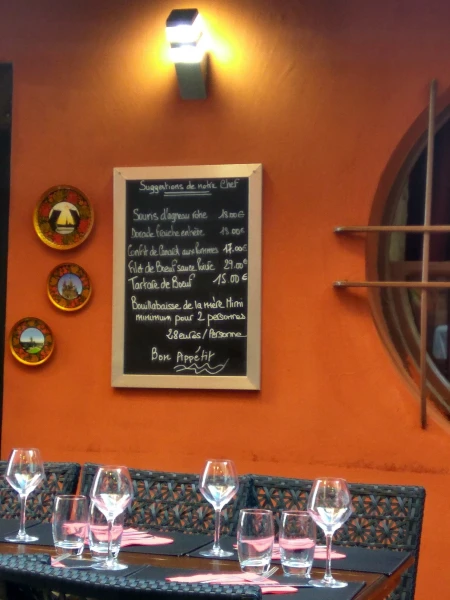 Suggestions de notre Chef
Souris d'agneau rôtie 18.00€
Dorade fraîche entière 19.00€
Confit de Canard aux Pommes 17.00€
Filet de Boeuf sauce 29.00€
Tartare de Boeuf 15.00€
Bouillabaisse de la mère Mimi
minimum pour 2 personnes
28 euros/Personne
Bon Appétit